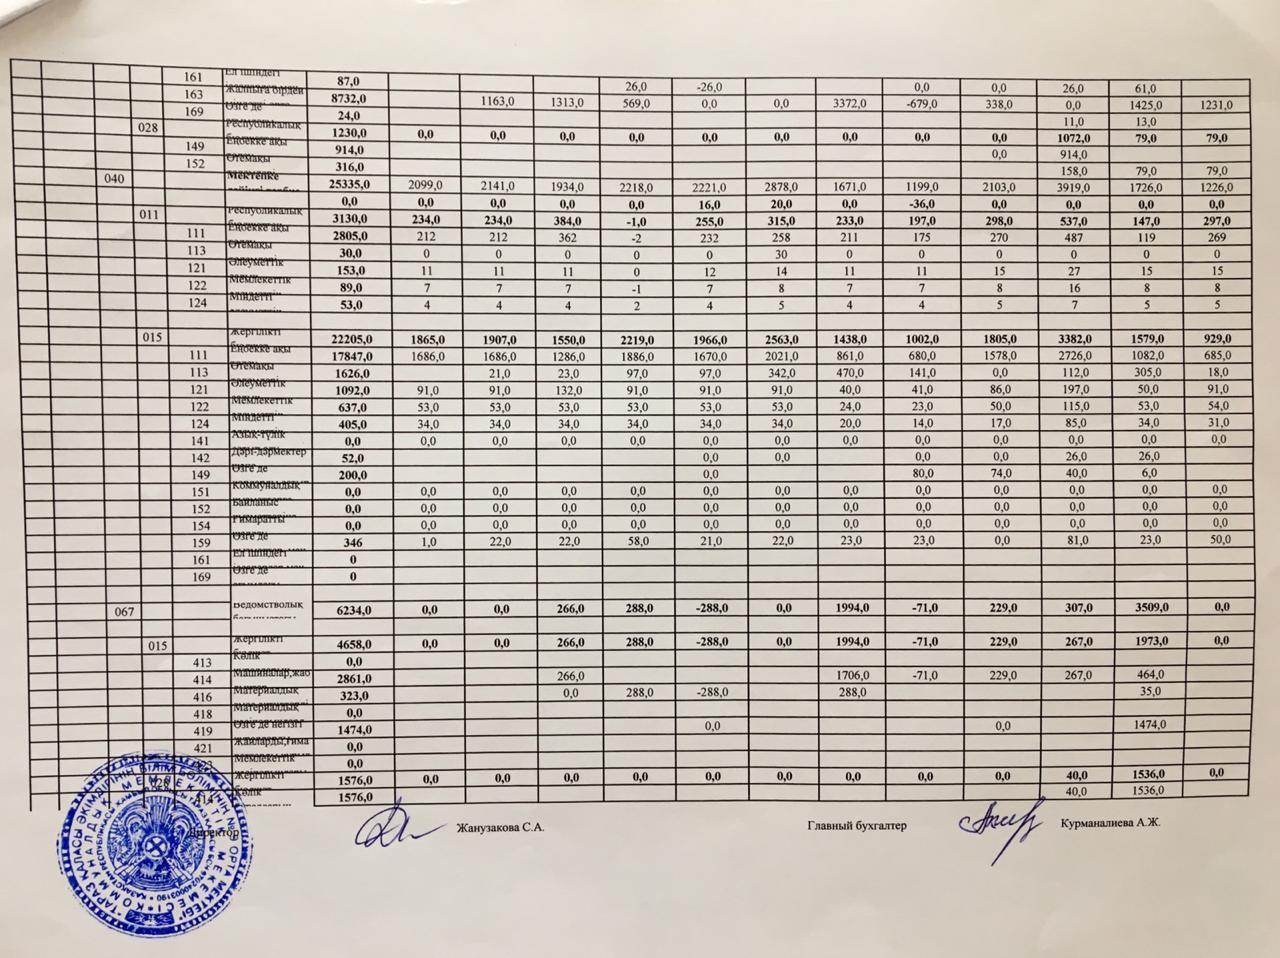 161 Ел ішіндегі 87,0 26,0 -26,0 0,0 0,0 26,0 61,0
163 Жалпыға бірдей 8732,0 1163,0 1313,0 569,0 0,0 0,0 3372,0 -679,0 338,0 0,0 1425,0 1231,0
169 Өзге де 24,0 11,0 13,0
028 Республикалық 1230,0 0,0 0,0 0,0 0,0 0,0 0,0 0,0 0,0 0,0 1072,0 79,0 79,0
149 Еңбекке ақы 914,0 0,0 914,0
152 Өтемақы 316,0 158,0 79,0 79,0
040 Мектепке 25335,0 2099,0 2141,0 1934,0 2218,0 2221,0 2878,0 1671,0 1199,0 2103,0 3919,0 1726,0 1226,0
0,0 0,0 0,0 0,0 0,0 16,0 20,0 0,0 -36,0 0,0 0,0 0,0 0,0
011 Республикалық 3130,0 234,0 234,0 384,0 -1,0 255,0 315,0 233,0 197,0 298,0 537,0 147,0 297,0
111 Еңбекке ақы 2805,0 212 212 362 -2 232 258 211 175 270 487 119 269
113 Өтемақы 30,0 0 0 0 0 0 30 0 0 0 0 0 0
121 Әлеуметтік 153,0 11 11 11 0 12 14 11 11 15 27 15 15
122 Мемлекеттік 89,0 7 7 7 -1 7 8 7 7 8 16 8 8
124 Міндетті 53,0 4 4 4 2 4 5 4 4 5 7 5 5
015 Жергілікті 22205,0 1865,0 1907,0 1550,0 2219,0 1966,0 2563,0 1438,0 1002,0 1805,0 3382,0 1579,0 929,0
111 Еңбекке ақы 17847,0 1686,0 1686,0 1286,0 1886,0 1670,0 2021,0 861,0 680,0 1578,0 2726,0 1082,0 685,0
113 Өтемақы 1626,0 21,0 23,0 97,0 97,0 342,0 470,0 141,0 0,0 112,0 305,0 18,0
121 Әлеуметтік 1092,0 91,0 91,0 132,0 91,0 91,0 91,0 40,0 41,0 86,0 197,0 50,0 91,0
122 Мемлекеттік 637,0 53,0 53,0 53,0 53,0 53,0 53,0 24,0 23,0 50,0 115,0 53,0 54,0
124 Міндетті 405,0 34,0 34,0 34,0 34,0 34,0 34,0 20,0 14,0 17,0 85,0 34,0 31,0
141 Азық-түлік 0,0 0,0 0,0 0,0 0,0 0,0 0,0 0,0 0,0 0,0 0,0 0,0 0,0
142 Дәрі-дәрмектер 52,0 0,0 0,0 0,0 0,0 26,0 26,0
149 Өзге де 200,0 0,0 80,0 74,0 40,0 6,0
151 Коммуналдық 0,0 0,0 0,0 0,0 0,0 0,0 0,0 0,0 0,0 0,0 0,0 0,0 0,0
152 Байланыс 0,0 0,0 0,0 0,0 0,0 0,0 0,0 0,0 0,0 0,0 0,0 0,0 0,0
154 Ғимаратты 0,0 0,0 0,0 0,0 0,0 0,0 0,0 0,0 0,0 0,0 0,0 0,0 0,0
159 Өзге де 346 1,0 22,0 22,0 58,0 21,0 22,0 23,0 23,0 0,0 81,0 23,0 50,0
161 Ел ішіндегі 0
169 Өзге де 0
067 Ведомстволық 6234,0 0,0 0,0 266,0 288,0 -288,0 0,0 1994,0 -71,0 229,0 307,0 3509,0 0,0
015 Жергілікті 4658,0 0,0 0,0 266,0 288,0 -288,0 0,0 1994,0 -71,0 229,0 267,0 1973,0 0,0
413 Көлік 0,0
414 Машиналар,жаб 2861,0 266,0 1706,0 -71,0 229,0 267,0 464,0
416 Материалдық 323,0 0,0 288,0 -288,0 288,0 35,0
418 Материалдық 0,0
419 Өзге де негізгі 1474,0 0,0 0,0 1474,0
421 Жайларды,ғима 0,0
Мемлекеттік 0,0
028 Жергілікті 1576,0 0,0 0,0 0,0 0,0 0,0 0,0 0,0 0,0 0,0 40,0 1536,0 0,0
414 Көлік 1576,0 40,0 1536,0
Директор Жанузакова С.А. Главный бухгалтер Курманалиева А.Ж.